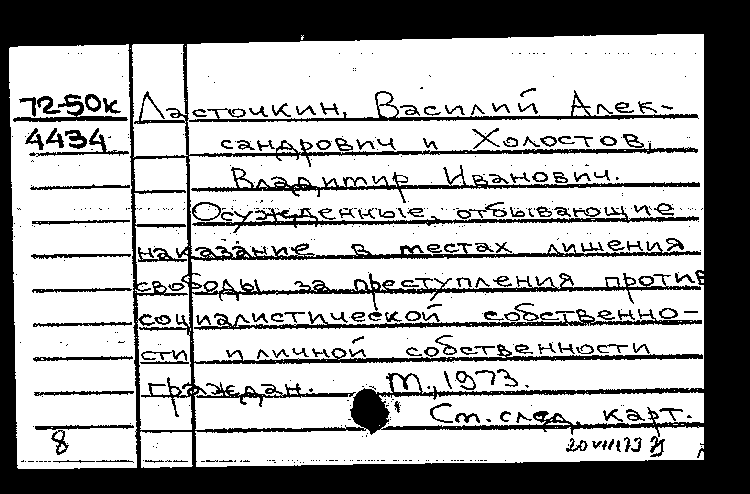 72-50к Ласточкин, Василий Алек-
4434 сандрович и Холостов,
Владимир Иванович.
Осужденные, отбывающие
наказание в местах лишения
свободы за преступления против
социалистической собственно-
сти и личной собственности
граждан. М., 1973.
См. след. карт.
8 20 VIII 73